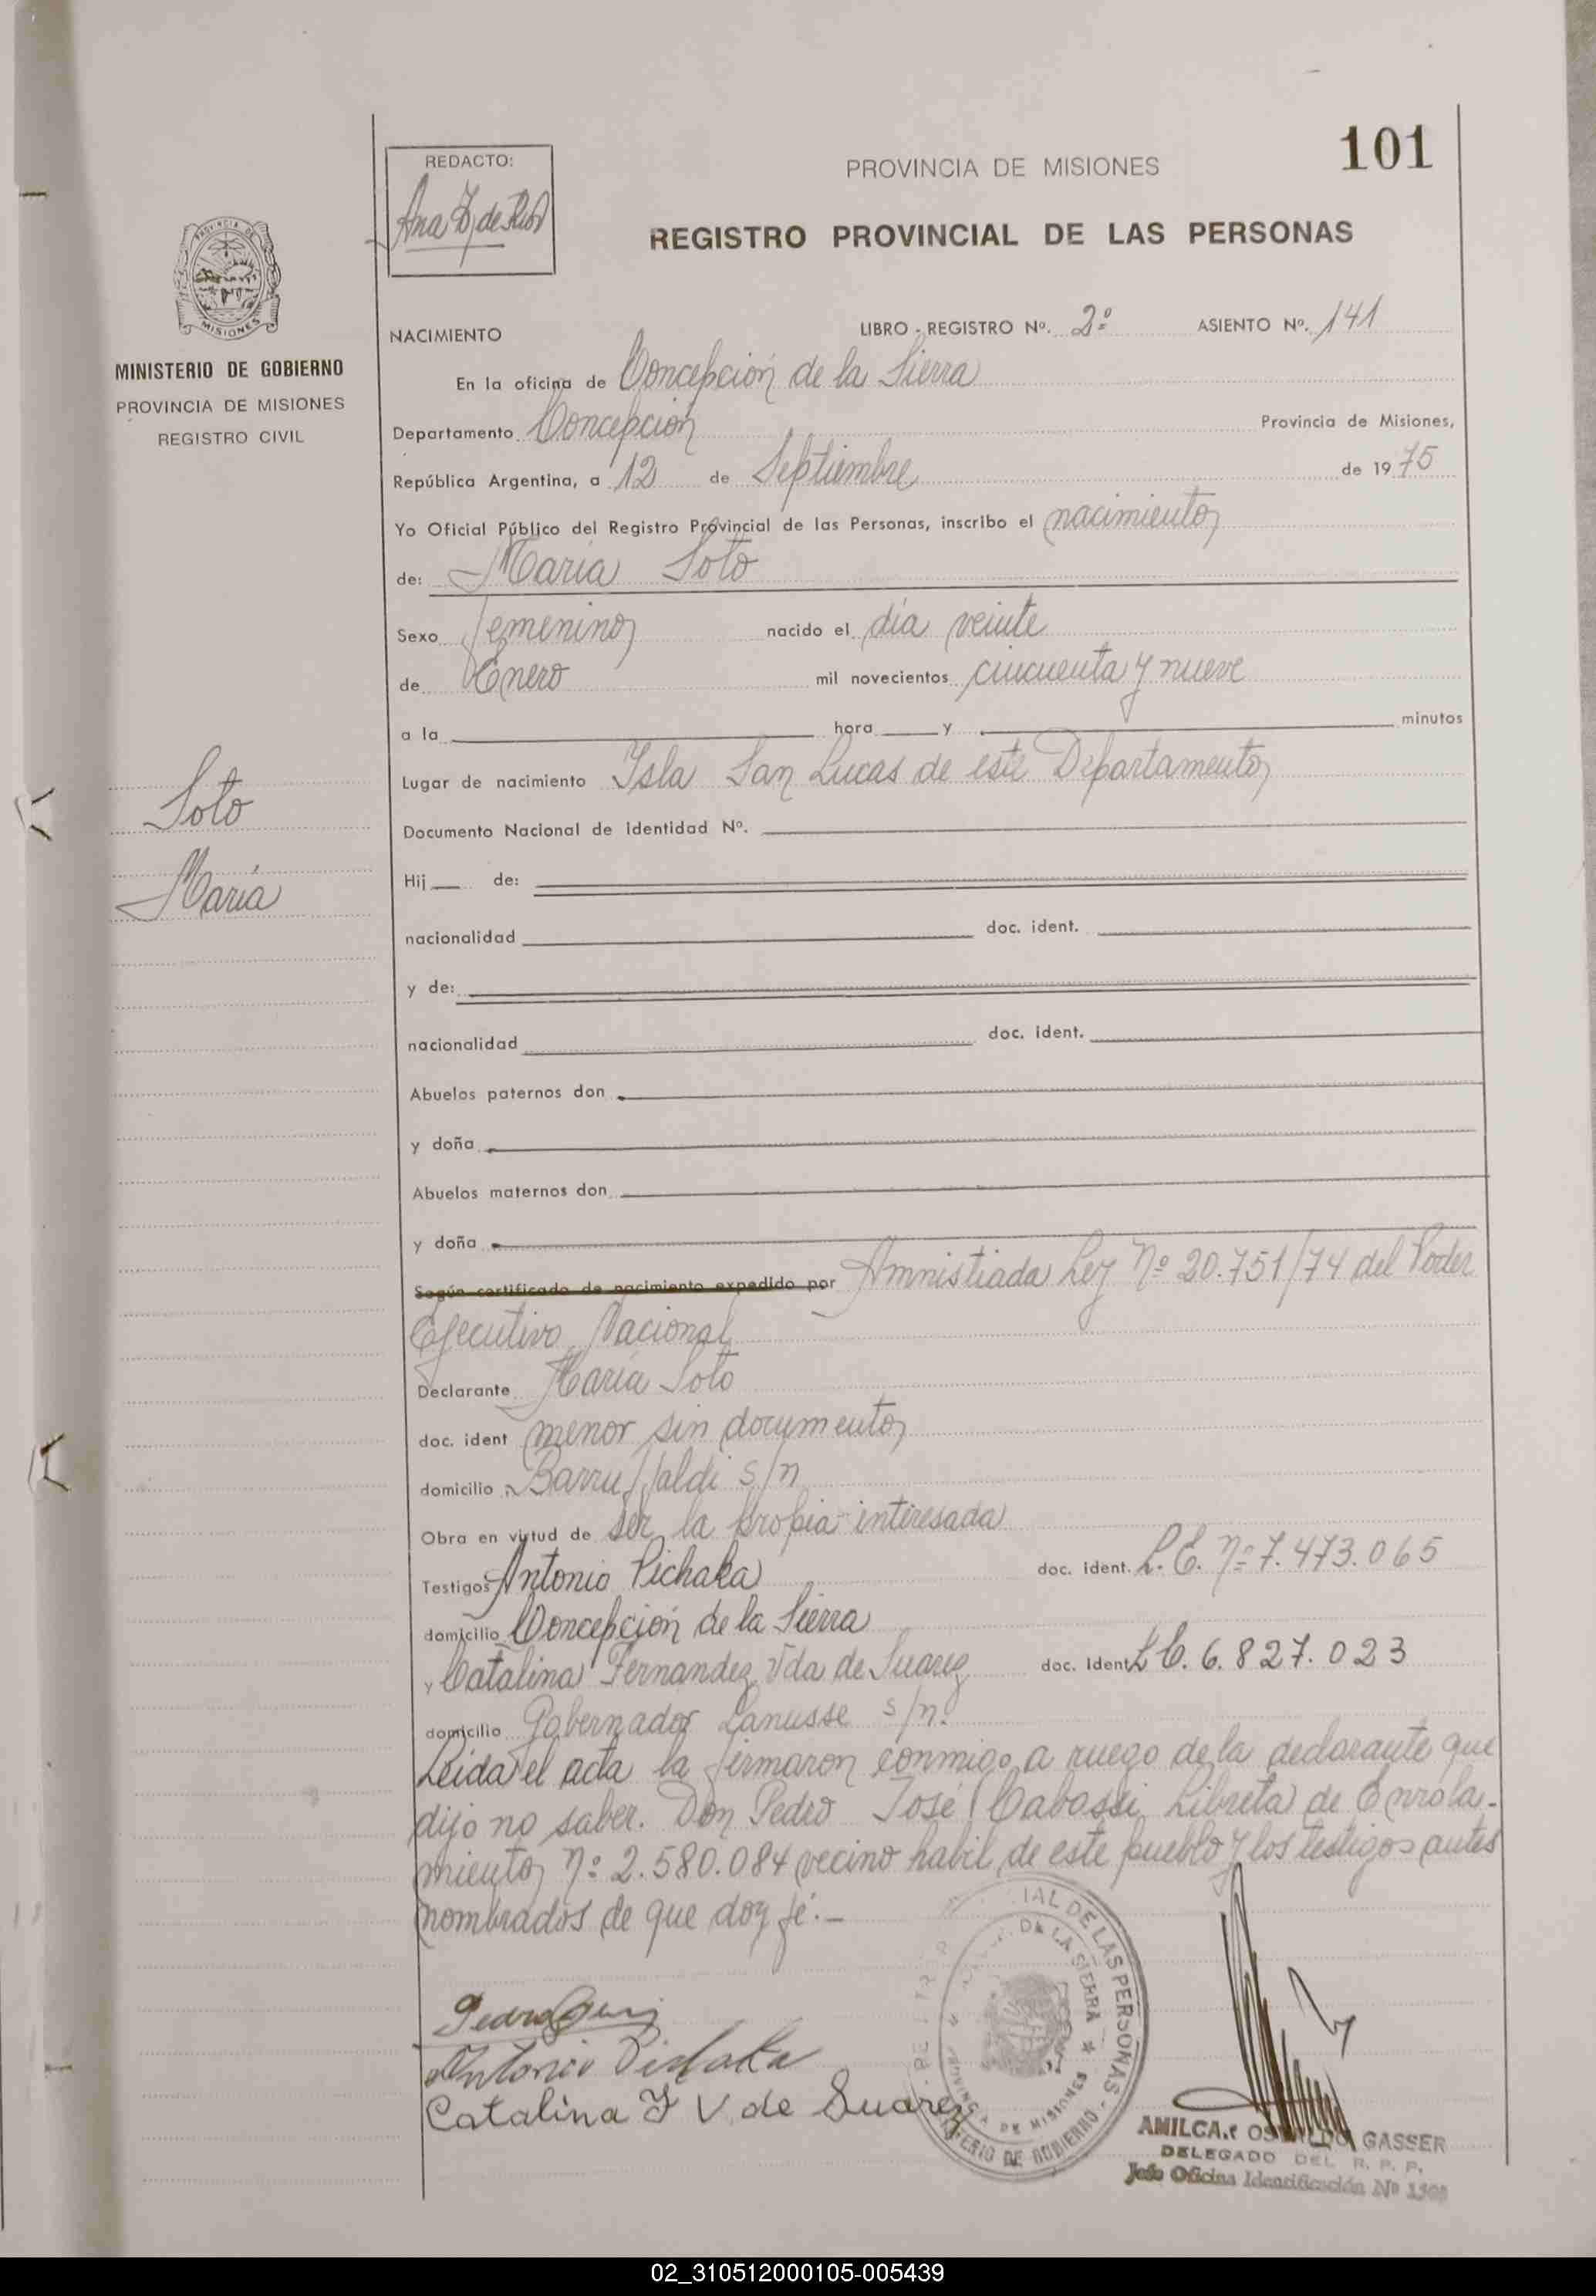 101
REDACTO:
PROVINCIA DE MISIONES
REGISTRO PROVINCIAL DE LAS PERSONAS
PROVINCIA DE
MISIONES
MINISTERIO DE GOBIERNO
PROVINCIA DE MISIONES
REGISTRO CIVIL
NACIMIENTO LIBRO - REGISTRO Nº. 2º ASIENTO Nº. 141
En la oficina de Concepción de la Sierra
Departamento Concepción Provincia de Misiones,
República Argentina, a 12 de Septiembre de 1975
Yo Oficial Público del Registro Provincial de las Personas, inscribo el nacimiento
de: María Soto
Sexo femenino nacido el día veinte
de Enero mil novecientos cincuenta y nueve
a la hora y minutos
Lugar de nacimiento Isla San Lucas de este Departamento
Soto
María
Documento Nacional de identidad Nº.
Hij de:
nacionalidad doc. ident.
y de:
nacionalidad doc. ident.
Abuelos paternos don
y doña
Abuelos maternos don
y doña
Según certificado de nacimiento expedido por Amnistiada Ley Nº 20.751/74 del Poder
Ejecutivo Nacional
Declarante María Soto
doc. ident menor sin documento
domicilio Barruffaldi s/n
Obra en virtud de ser la propia interesada
Testigos Antonio Pichaka doc. ident. L.E. Nº 7.473.065
domicilio Concepción de la Sierra
y Catalina Fernandez Vda de Suarez doc. ident L.C. 6.827.023
domicilio Gobernador Lanusse s/n.
Leida el acta la firmaron conmigo a ruego de la declarante que
dijo no saber. Don Pedro José Libreta de Enrola-
miento Nº 2.580.084 vecino habil de este pueblo y los testigos antes
nombrados de que doy fé.-
Pedro
Antonio Pichaka
Catalina F V. de Suarez
IAL DE LAS PERSONAS
DE LA SIERRA
PROVINCIA DE MISIONES
MINISTERIO DE GOBIERNO
AMILCAR OSVALDO GASSER
DELEGADO DEL R. P. P.
Jefe Oficina Identificación Nº
02_310512000105-005439